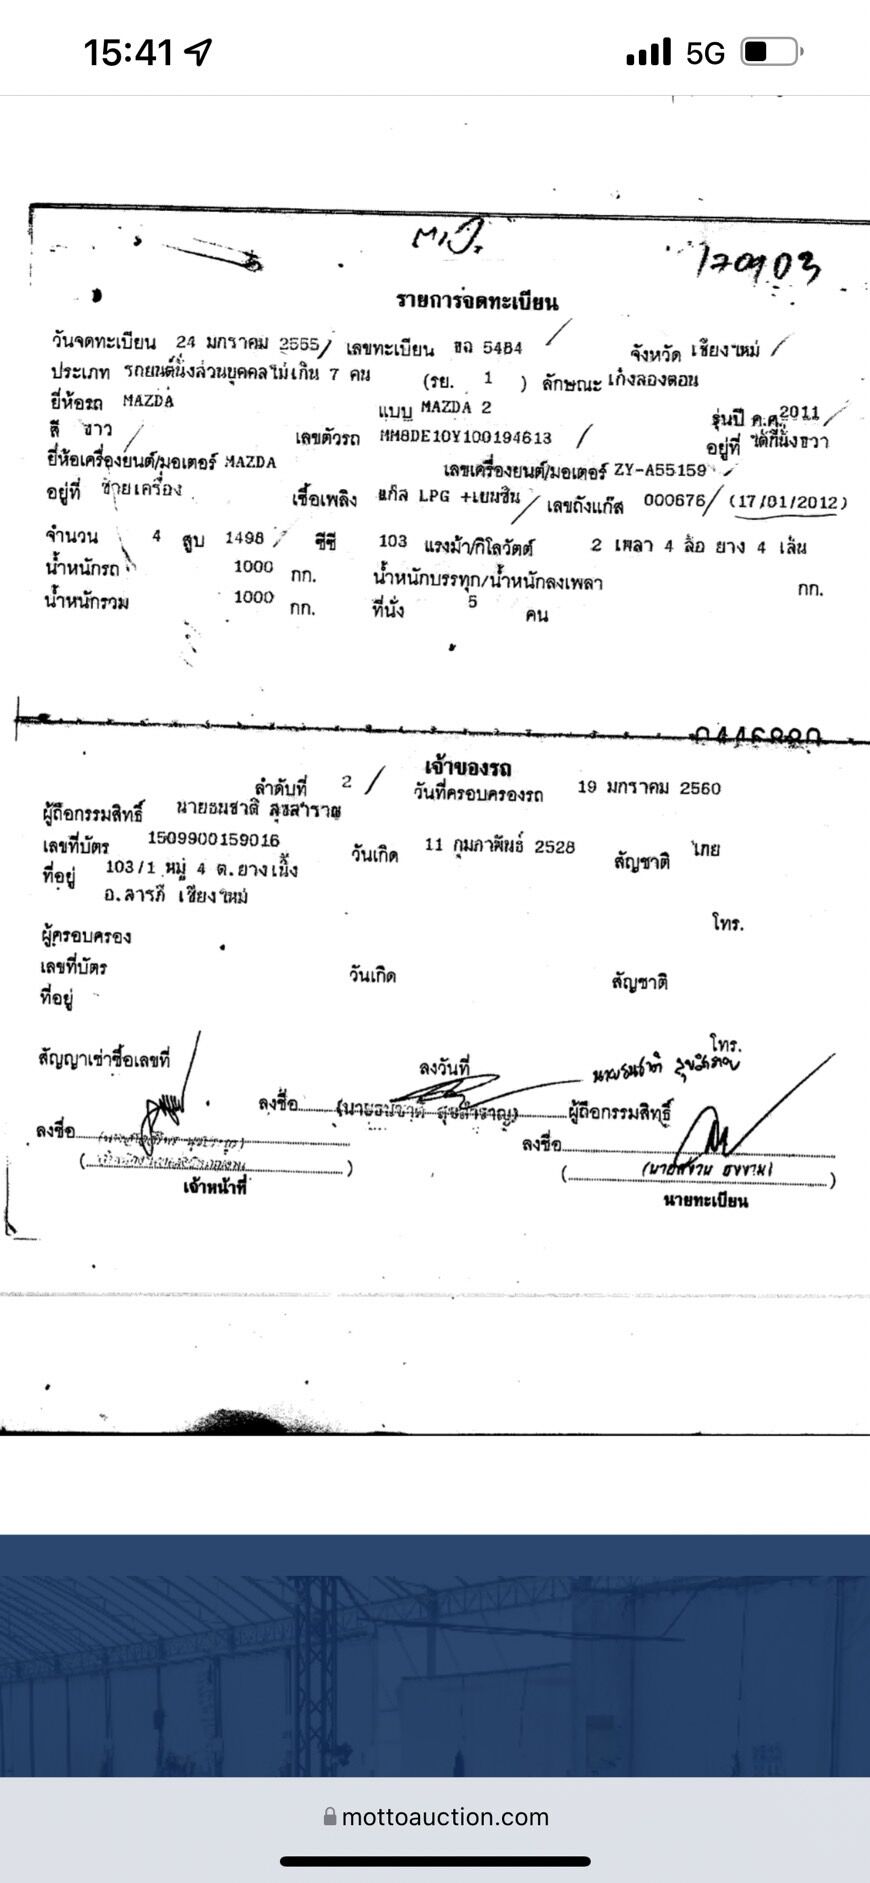 15:41 5G
 M,J.
170903
รายการจดทะเบียน
วันจดทะเบียน 24 มกราคม 2555 เลขทะเบียน ขฉ 5484 จังหวัด เชียงใหม่
ประเภท รถยนต์นั่งส่วนบุคคลไม่เกิน 7 คน (รย. 1 ) ลักษณะ เก๋งสองตอน
ยี่ห้อรถ MAZDA แบบ MAZDA 2 รุ่นปี ค.ศ. 2011
สี ขาว เลขตัวรถ MM8DE10Y100194613 อยู่ที่ ใต้ที่นั่งขวา
ยี่ห้อเครื่องยนต์/มอเตอร์ MAZDA เลขเครื่องยนต์/มอเตอร์ ZY-A55159
อยู่ที่ ซ้ายเครื่อง เชื้อเพลิง แก๊ส LPG +เบนซิน เลขถังแก๊ส 000676 (17/01/2012)
จำนวน 4 สูบ 1498 ซีซี 103 แรงม้า/กิโลวัตต์ 2 เพลา 4 ล้อ ยาง 4 เส้น
น้ำหนักรถ 1000 กก. น้ำหนักบรรทุก/น้ำหนักลงเพลา กก.
น้ำหนักรวม 1000 กก. ที่นั่ง 5 คน
เจ้าของรถ
ลำดับที่ 2 วันที่ครอบครองรถ 19 มกราคม 2560
ผู้ถือกรรมสิทธิ์ นายธนชาติ สุขสำราญ
เลขที่บัตร 1509900159016 วันเกิด 11 กุมภาพันธ์ 2528 สัญชาติ ไทย
ที่อยู่ 103/1 หมู่ 4 ต.ยางเนิ้ง
อ.สารภี เชียงใหม่
โทร.
ผู้ครอบครอง
เลขที่บัตร วันเกิด สัญชาติ
ที่อยู่
โทร.
สัญญาเช่าซื้อเลขที่ ลงวันที่ นายธนชาติ สุขสำราญ
ลงชื่อ (นายธนชาติ สุขสำราญ) ผู้ถือกรรมสิทธิ์
ลงชื่อ ลงชื่อ
( ) ( )
เจ้าหน้าที่ นายทะเบียน
mottoauction.com